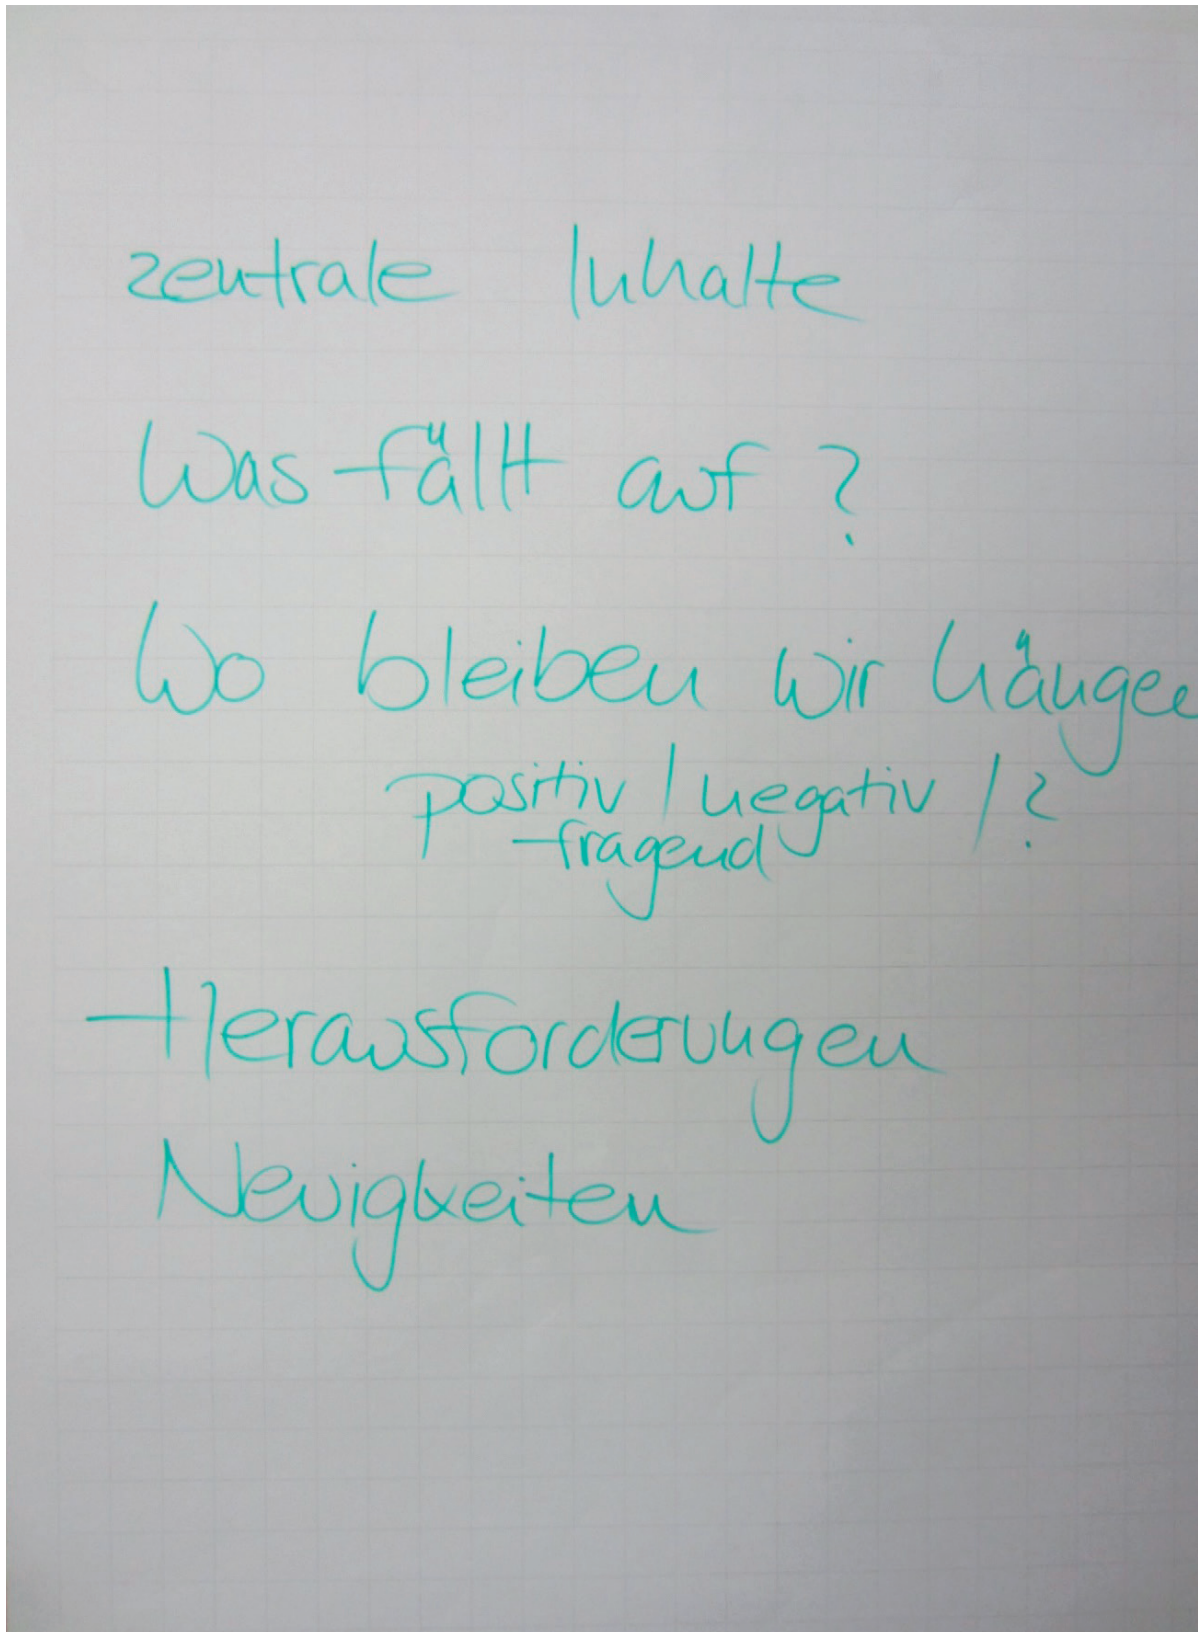 zentrale Inhalte
Was fällt auf?
Wo bleiben wir hängen
positiv / negativ / ?
fragend
Herausforderungen
Neuigkeiten